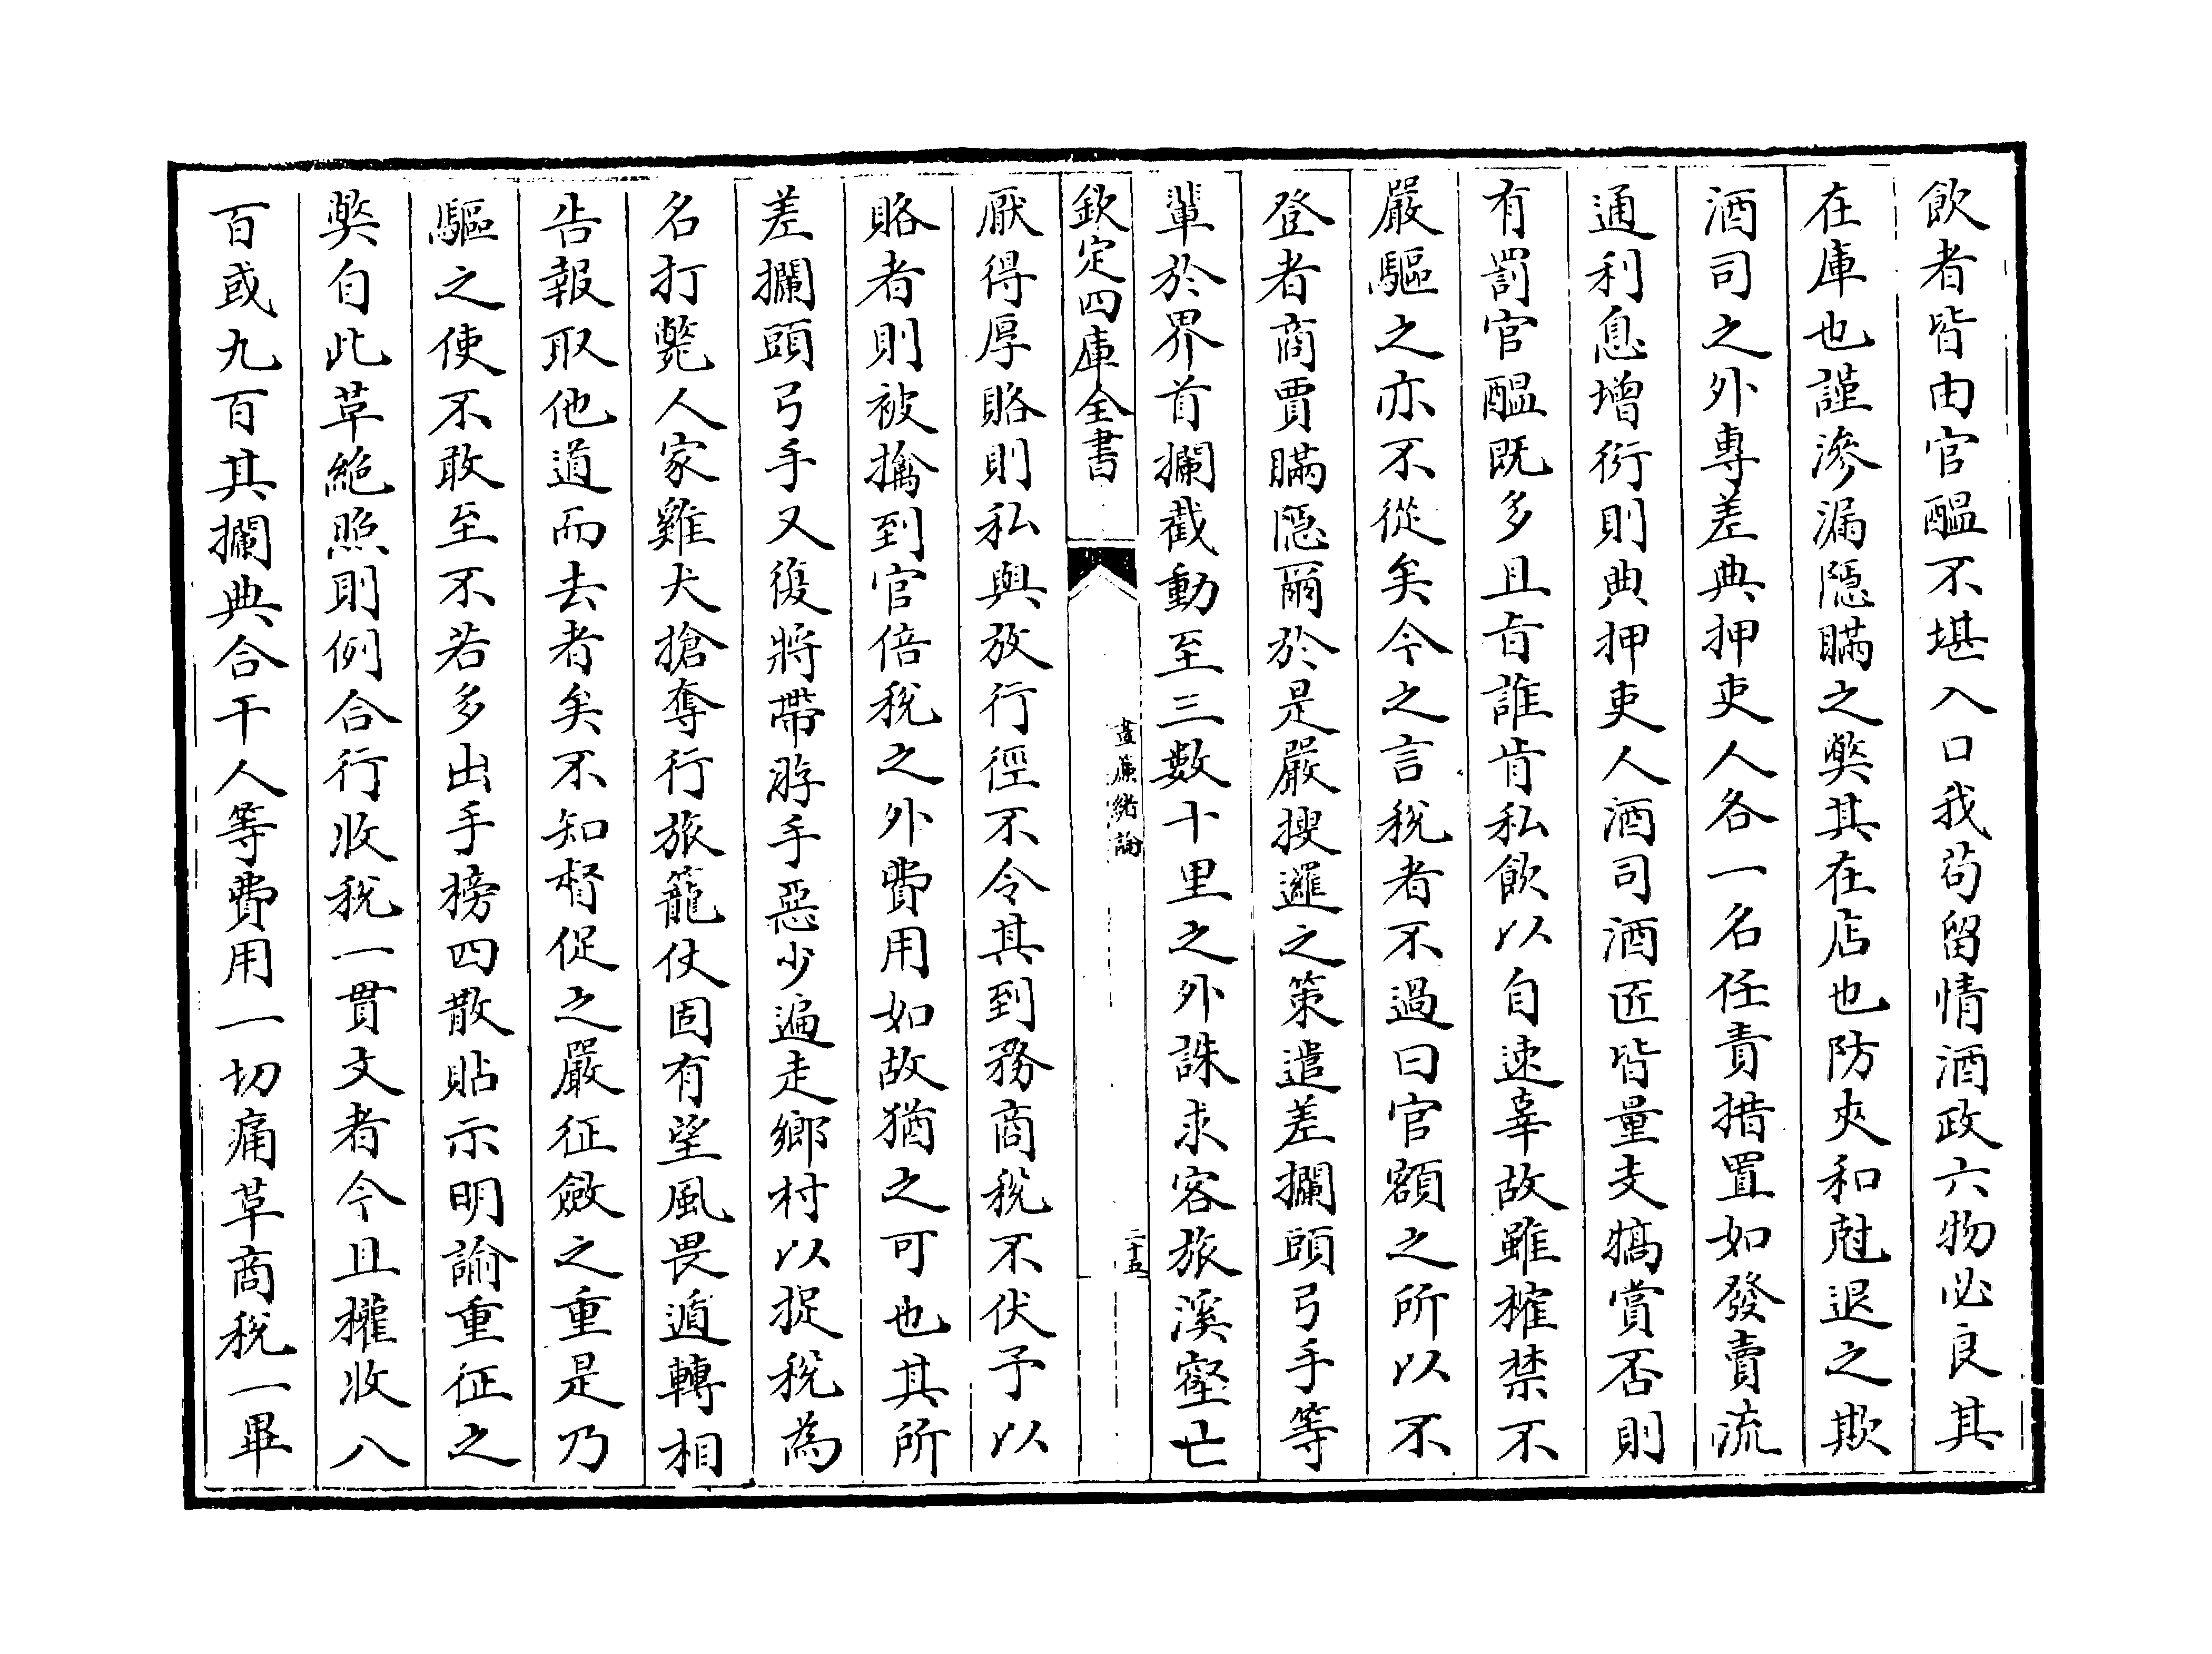 飲者皆由官醖不堪入口我茍留情酒政六物必良其
在庫也謹滲漏隱瞞之弊其在店也防夾和尅退之欺
酒司之外專差典押吏人各一名任責措置如發賣流
通利息增衍則典押吏人酒司酒匠皆量支犒賞否則
有罰官醖既多且旨誰肯私飲以自速辜故雖榷禁不
嚴驅之亦不從矣今之言税者不過曰官額之所以不
登者商賈瞞隱爾於是嚴搜邏之策遣差攔頭弓手等
輩於界首攔截動至三數十里之外誅求客旅溪壑亡
欽定四庫全書
晝簾緒論
二十五
厭得厚賂則私與放行徑不令其到務商税不伏予以
賂者則被擒到官倍税之外費用如故猶之可也其所
差攔頭弓手又復將帶游手惡少遍走鄉村以捉税為
名打甏人家雞犬搶奪行旅籠仗固有望風畏遁轉相
告報取他道而去者矣不知督促之嚴征斂之重是乃
驅之使不敢至不若多出手榜四散貼示明諭重征之
弊自此革絶照則例合行收税一貫文者今且權收八
百或九百其攔典合干人等費用一切痛革商税一畢